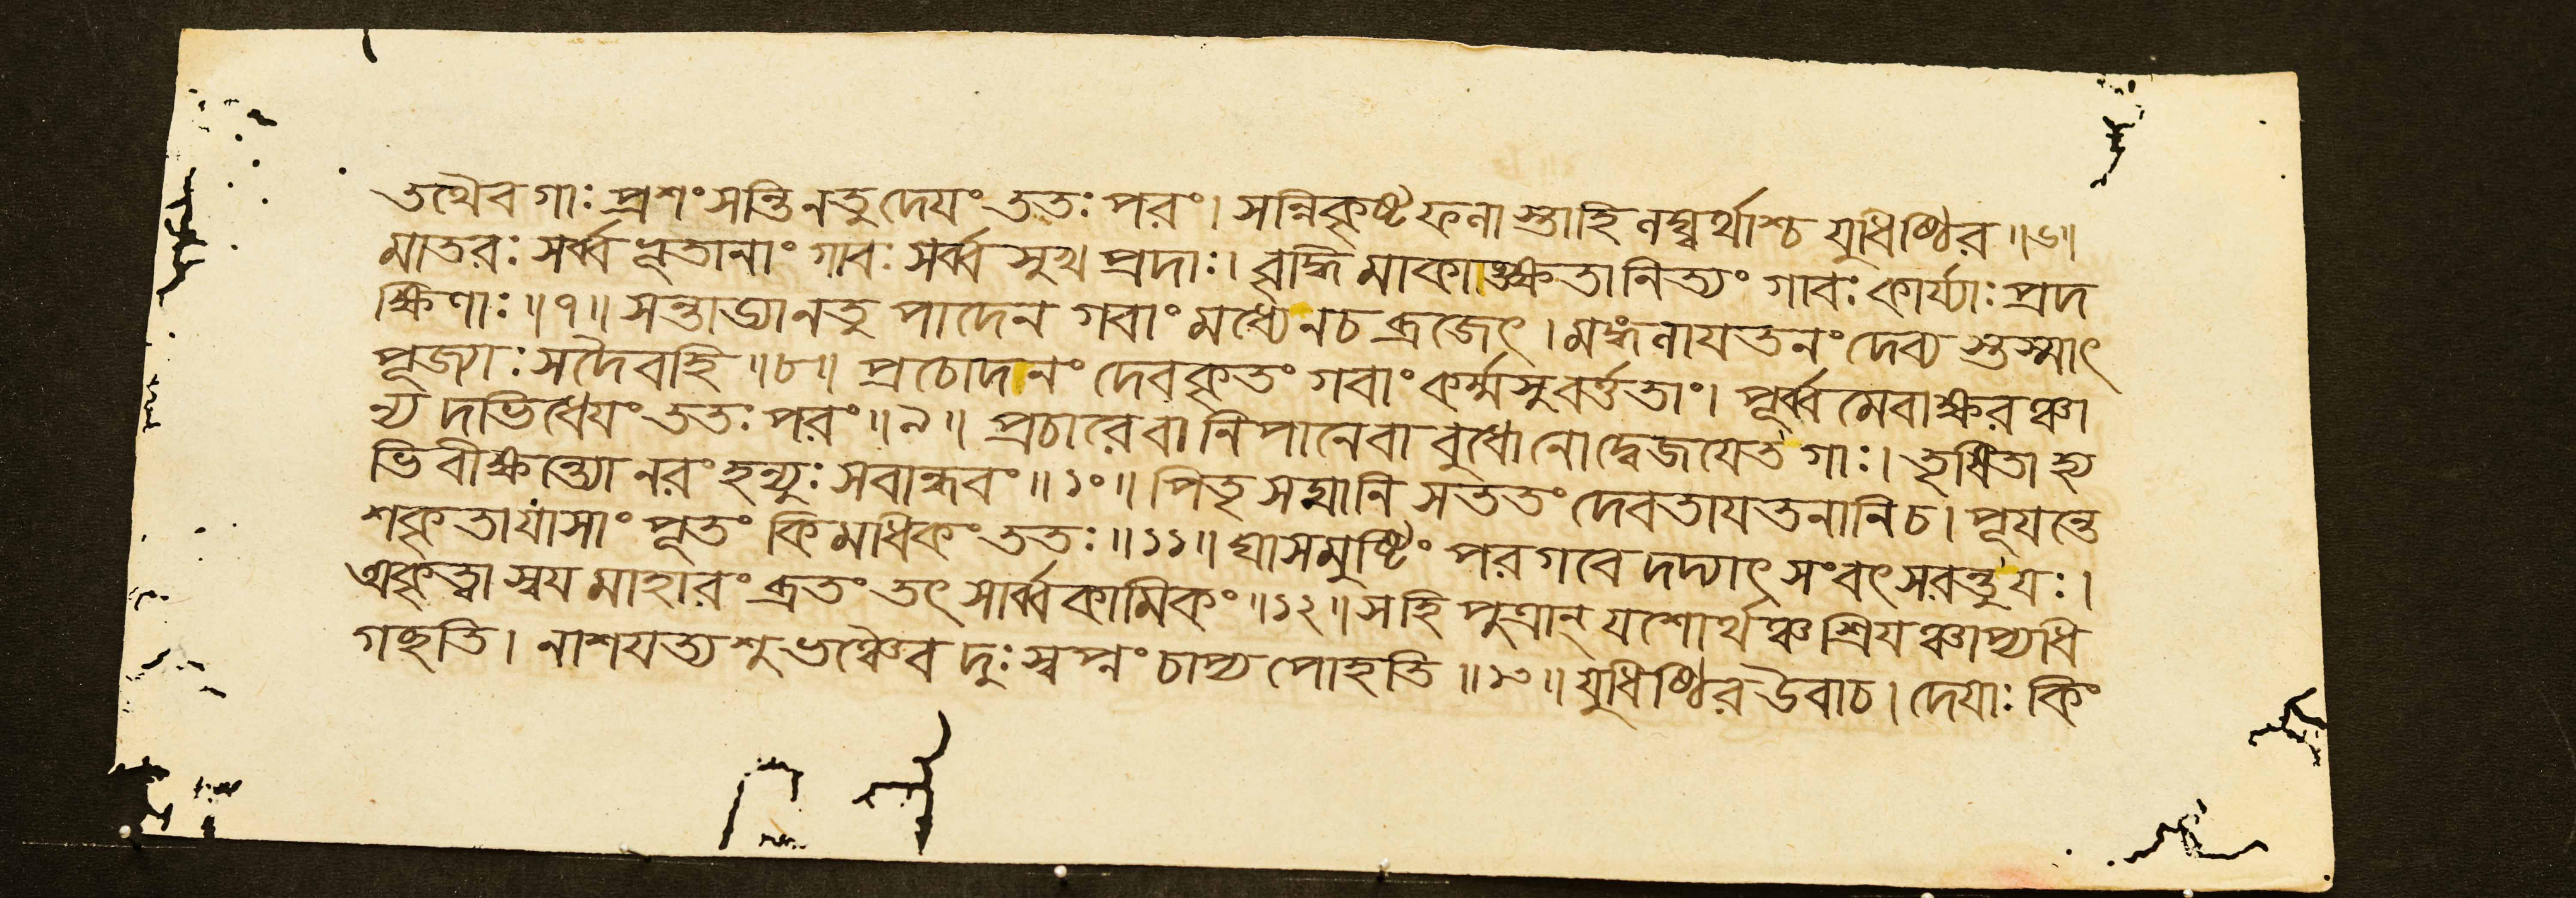 তথৈব গাঃ প্রশংসন্তি নতু দেযং ততঃ পরং। সন্নিকৃষ্ট ফলাস্তাহি লঘ্বর্থাশ্চ যুধিষ্ঠির॥৬॥
মাতরঃ সর্ব্বভূতানাং গাবঃ সর্ব্ব সুখ প্রদাঃ। বৃদ্ধি মাকাঙ্ক্ষতা নিত্যং গাবঃ কার্য্যাঃ প্রদ
ক্ষিণাঃ॥৭॥ সন্তাড্যা নতু পাদেন গবাং মধ্যে নচ ব্রজেৎ। মঙ্গলাযতনং দেব্য স্তস্মাৎ
পূজ্যাঃ সদৈবহি॥৮॥ প্রচোদনং দেবকৃতং গবাং কর্ম্মসু বর্ত্ততাং। পূর্ব্ব মেবাক্ষরঞ্চা
ন্য দভিধেযং ততঃ পরং॥৯॥ প্রচারেবা নিপানেবা বুধো নোদ্বেজযেত গাঃ। তৃষিতা হ্য
ভিবীক্ষন্ত্যো নরং হন্যুঃ সবান্ধবং॥১০॥ পিতৃসদ্মানি সততং দেবতাযতনানিচ। পূযন্তে
শকৃতাযাসাং পূতং কিমধিকং ততঃ॥১১॥ ঘাসমুষ্টিং পরগবে দদ্যাৎ সংবৎসরন্তুযঃ।
অকৃত্বা স্বয মাহারং ব্রতং তৎ সার্ব্বকামিকং॥১২॥ সহি পুত্রান্ যশোর্থঞ্চ শ্রিযঞ্চাপ্যধি
গচ্ছতি। নাশযত্য শুভঞ্চৈব দুঃস্বপ্নং চাপ্য পোহতি॥১৩॥ যুধিষ্ঠির উবাচ। দেযাঃ কিং